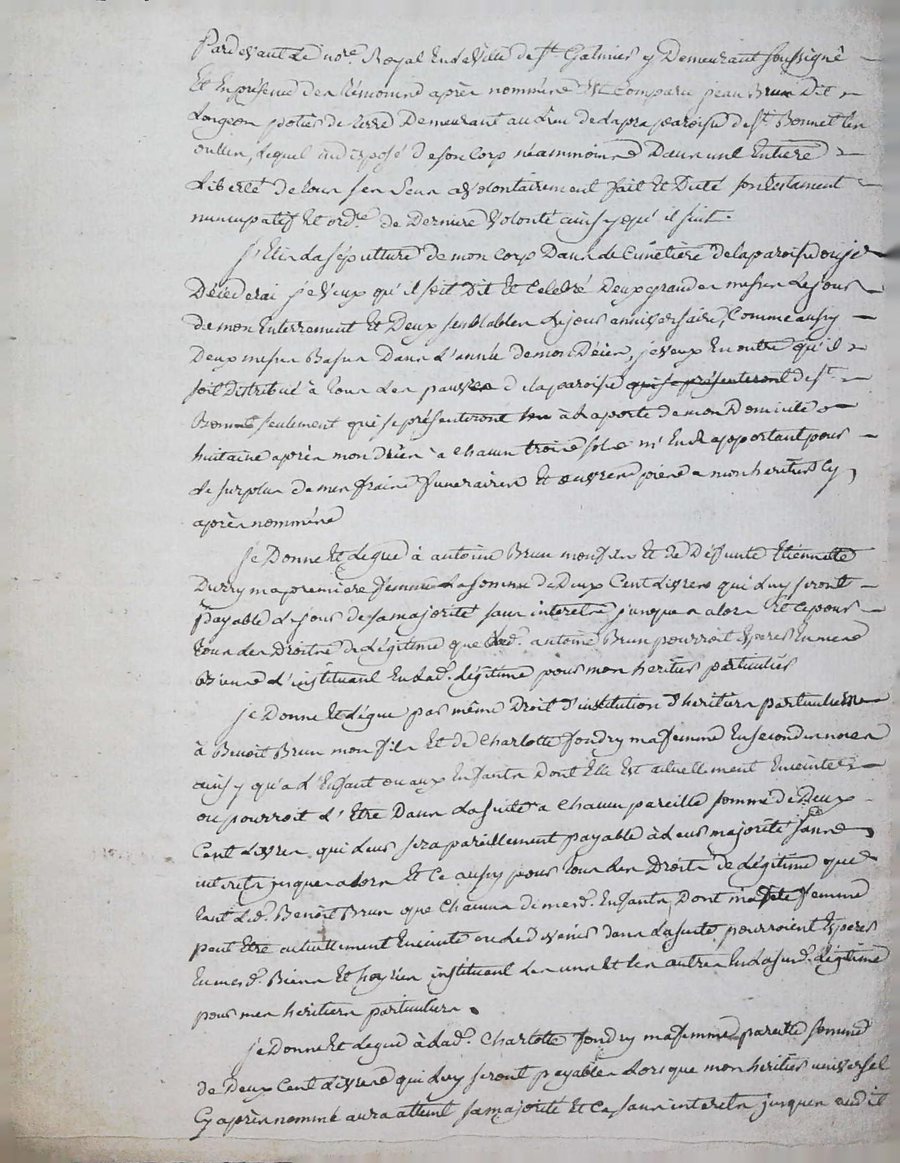 Pardevant Le no.re Royal En La Ville de S.t Galmier y Demeurant soussigné
Et En présence des témoins après nommés Est comparu jean Brun Dit
Demeurant au Lieu de Lapra paroisse de S.t Bonnet les
oulles, Lequel indisposé de son Corp néammoins Dans une Entiere
Liberté de tous ses sens a volontairement fait Et Dicté son testament
nuncupatif Et ord.re de Derniere Volonté ainsy qu'il suit.
j'Elis La sépulture de mon Corp Dans Le Cimetiere de La paroisse ou je
Décéderai je Veux qu'il soit Dit Et Celebré Deux grandes messes Le jour
de mon Enterrement Et Deux semblables Le jour anniversaire, Comme aussy
Deux messes Basses Dans L'année de mon Décès, je veux En outre qu'il
soit Distribué à tous Les pauvres de La paroisse qui se présenteront de S.t
Bonnet seulement qui se présenteront à La porte de mon Domicile
huitaine après mon Décès à Chacun trois sols m'En Rapportant pour
Le surplus de mes frais funeraires Et œuvres pies a mon heritier Cy
après nommé
je Donne Et Legue à antoine Brun mon fils Et de Défunte Etiennette
Durry ma premiere femme La somme de Deux Cent Livres qui Luy seront
payable Le jour de sa majorité sans interets jusques alors Et Ce pour
tous Les Droits de Légitime que Led. antoine Brun pourroit Esperer En mes
Biens L'instituant En Lad. Légitime pour mon heritier particulier
je Donne Et Légue par même Droit D'institution D'heritiers particuliers
à Benoît Brun mon fils Et de Charlotte fondry ma femme En secondes noces
ainsy qu'a L'Enfant ou aux Enfants Dont Elle Est actuellement Enceinte
ou pourroit L'Etre Dans La suite a Chacun pareille somme de Deux
Cent Livres qui Leur sera pareillement payable à Leur majorité sans
interets jusques alors Et Ce aussy pour tous Les Droits de Légitime que
tant Led. Benoît Brun que Chacun de mesd. Enfants Dont ma dite femme
peut Etre actuellement Enceinte ou Le devenir dans La suite pourroient Esperer
En mesd. Biens Et hoyrie instituant Les uns Et Les autres En La susd. Légitime
pour mes heritiers particuliers.
je Donne Et Legue à Lad. Charlotte fondry ma femme pareille somme
de Deux Cent Livres qui Luy seront payables Lorsque mon heritier universel
Cy après nommé aura atteint sa majorité Et Ce sans interets jusques aud it